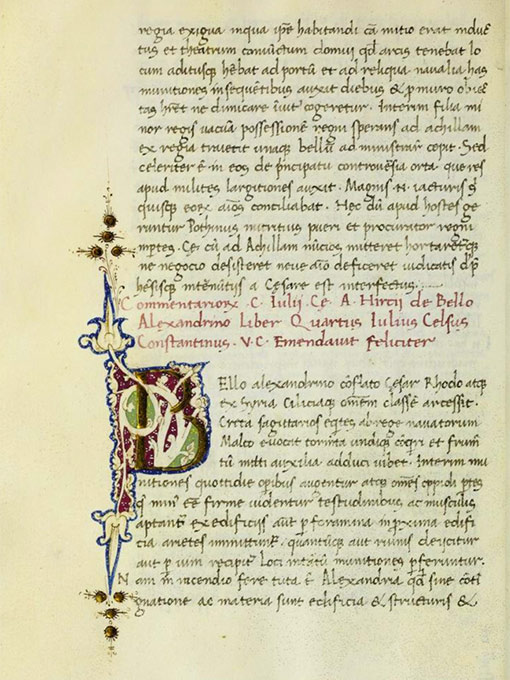 regia exigua inqua ip̄e habitandi cā initio erat induc̄
tus et theatrum coniūctum domui qd̄ arcis tenebat lo
cum aditusqꝫ hēbat ad portū et ad reliqua navalia has
munitiones insequētibus auxit diebus & p̱ muro obiec̄
tas hēret ne dimicare īvit' cogeretur. Interim filia mi
nor regis vacuā possessionē regni sperans ad achillam
ex regia traiecit unaqꝫ bellū administrar̄ cepit. Sed
celeriter ē in eos de p̄ncipatu controvēsia orta. que res
apud milites largitiones auxit. Magnis .N. iacturis q̄
quisqꝫ eoꝝ aīos conciliabat. Hec dū apud hostes ge
rantur Pothinus nutritius pueri et procurator regni
Ce. cū ad Achillam nūcios mitteret hortaretqꝫ
ne negocio desisteret neve aīo deficeret indicatis dep̄
hēsisqꝫ int̄nūtiis a Cesare est interfectus.
Commentarioꝝ. C. Iulii. Ce. A. Hircii de Bello
Alexandrino Liber Quartus Iulius Celsus
Constantinus. V. C. Emendavit feliciter
BEllo alexandrino cōflato Cesar Rhodo atqꝫ
ex Syria Ciliciaqꝫ omēm classē arcessit.
Creta sagitarios eq̄tes ab rege navatorum
Malco evocat torm̄ta undiqꝫ cōq̄ri et frum̄
tū mitti auxilia adduci iubet. Interim mu
nitiones quottidie opībus augentur atqꝫ omēs oppidi p̄tes
q̄ min' eē firme videntur testudinibus ac musculis
aptant' ex edificiis aut p̱ foramina in p̱xima edifi
cia arietes inmittunt'. quantūqꝫ aut ruinis deiicitur
aut p̱ vim recipit' loci intātū munitiones p̱feruntur.
Nam in incendio fere tuta ē Alexandria qd̄ sine cōti
gnatione ac materia sunt edificia & structuris &